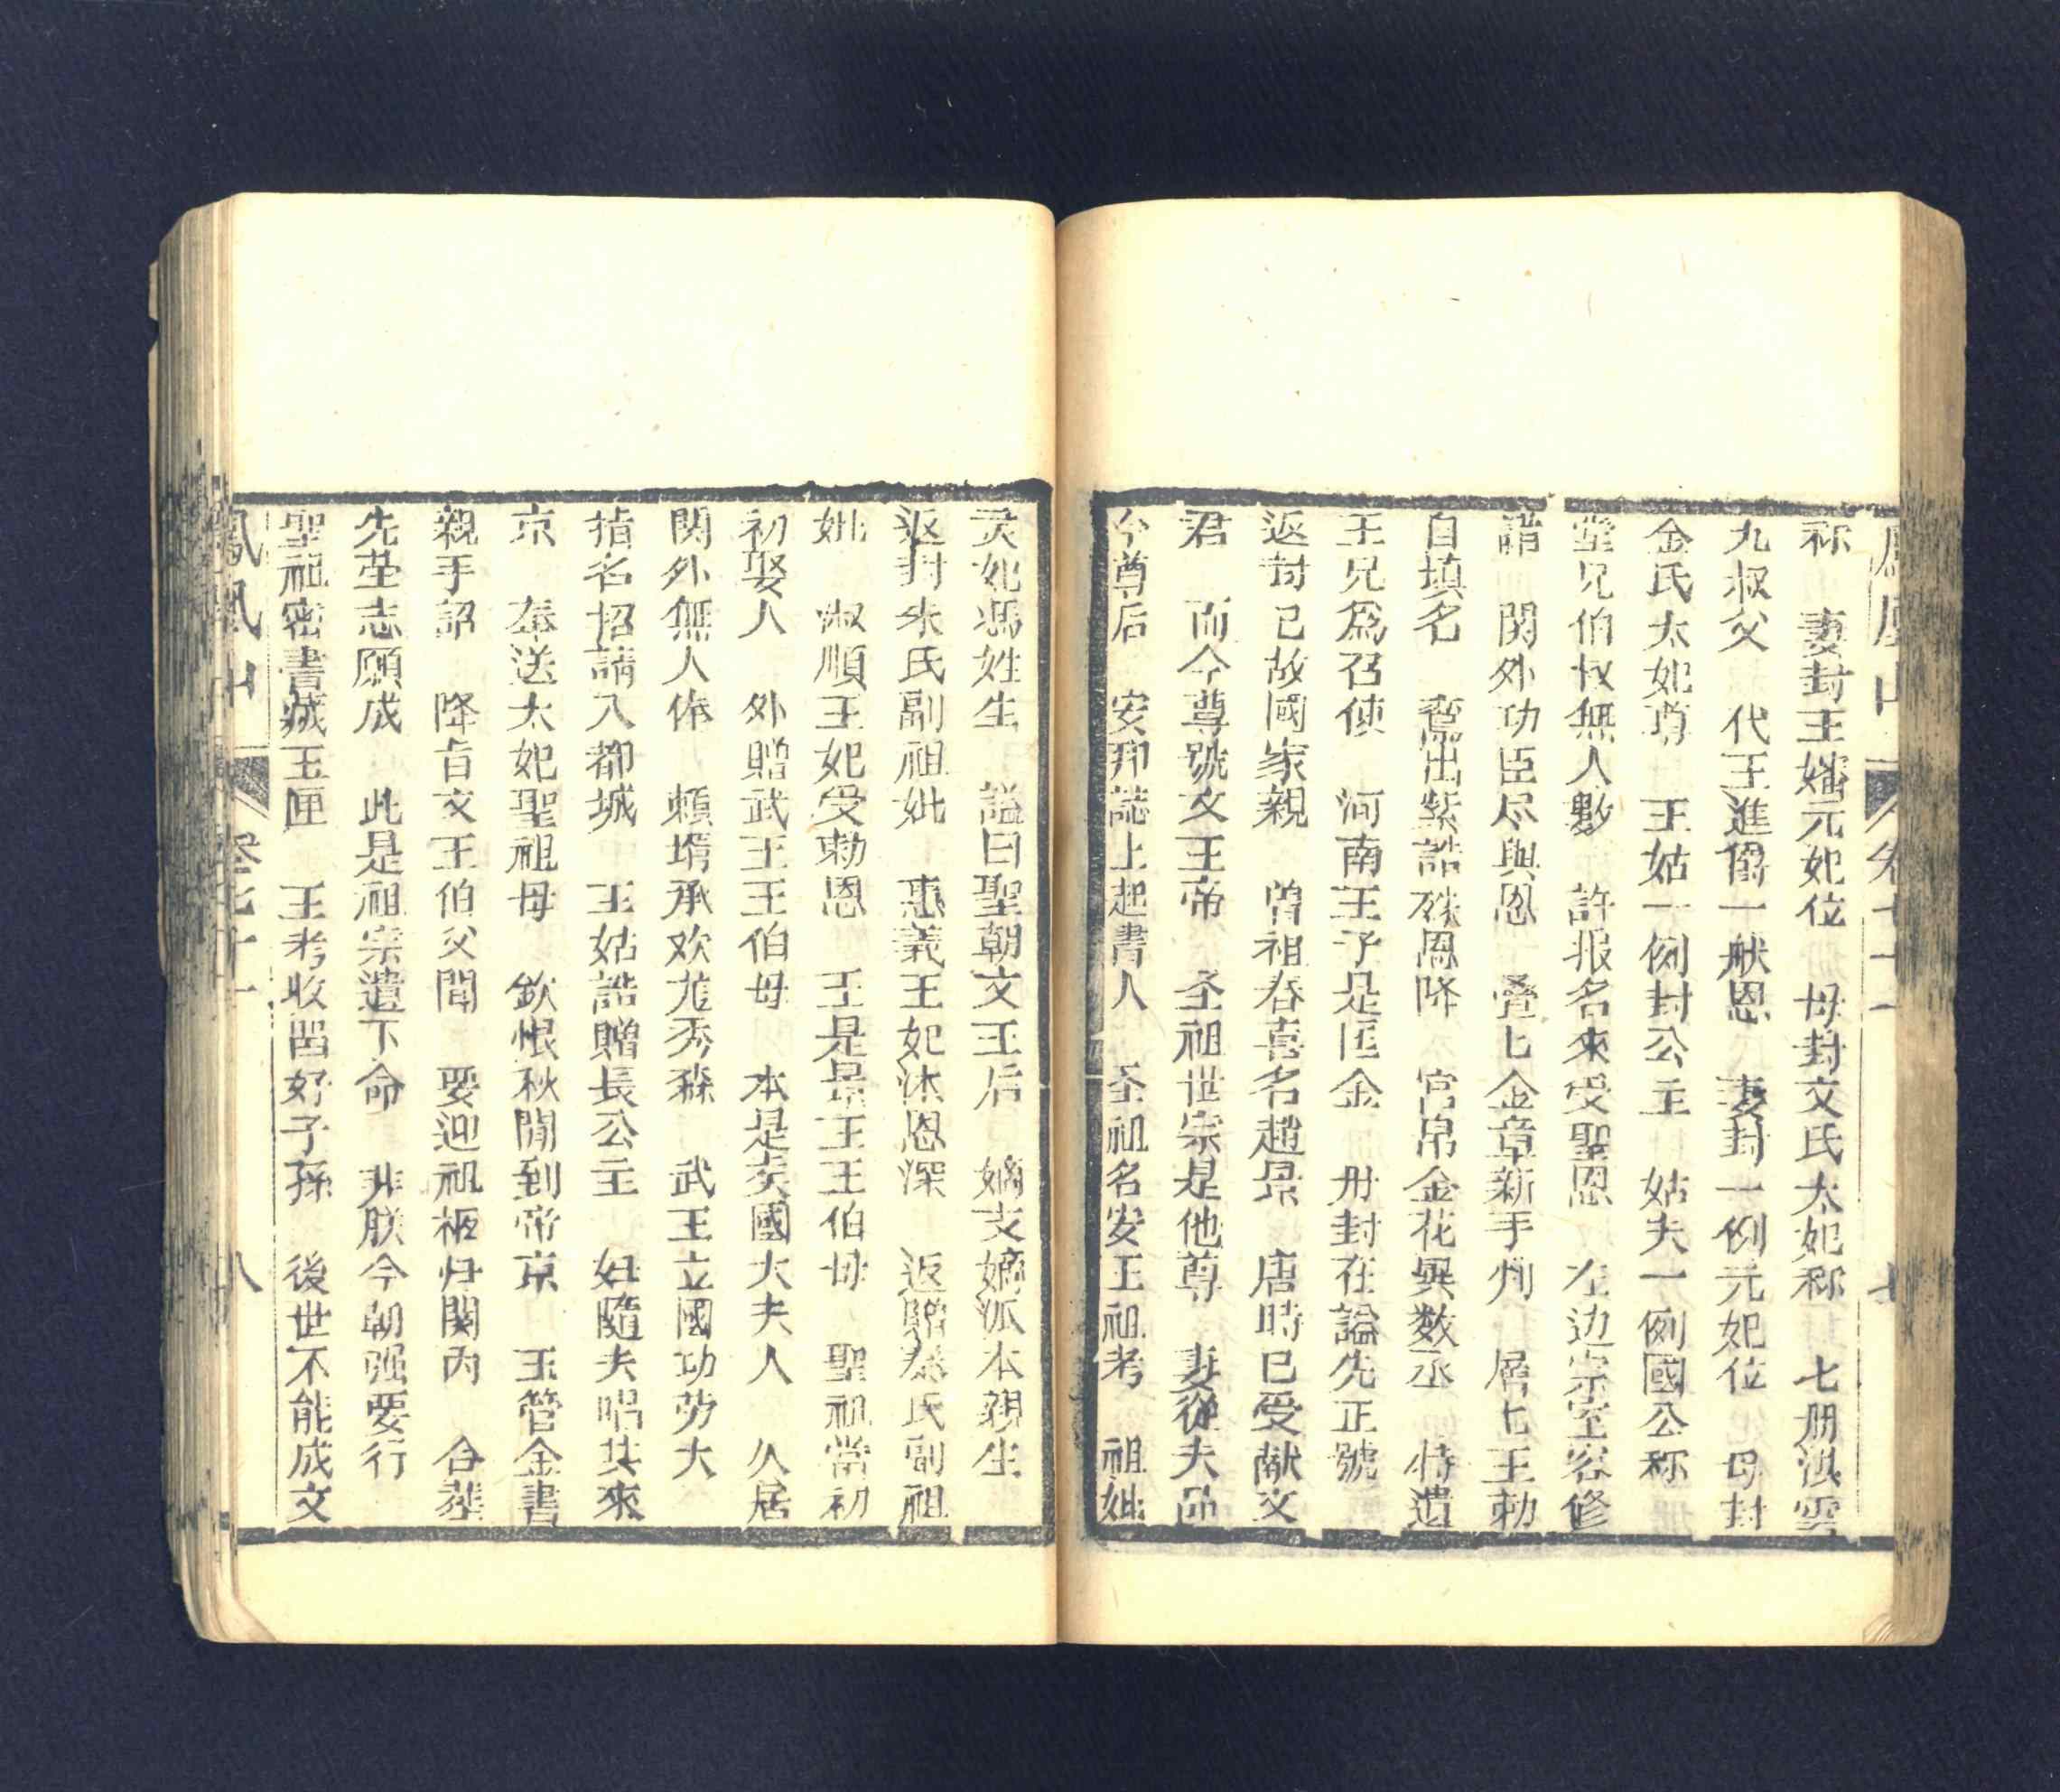 鳳凰山 卷七十一 七
称 妻封王嬸元妃位 母封文氏太妃称 七册淇
九叔父 代王進爵一献恩 妻封一例元妃位 母封
金氏太妃尊 王姑一例封公主 姑夫一例國公称
堂兄伯叔無人數 許报名來受聖恩 左边宗室容修
譜 関外功臣尽與恩 叠七金章新手州 層七王勅
自填名 鸞出紫誥殊恩降 宮帛金花異数丞 特遣
王兄爲召使 河南王子是匡金 册封在謚先正號
返封已故國家親 曾祖春喜名趙景 唐時已受献文
君 而今尊號文王帝 圣祖世宗是他尊 妻從夫品
今尊后 安邦誌上起書人 圣祖名安王祖考 祖妣
灵妃馮姓生 謚曰聖朝文王后 嫡支嫡派本親生
返封朱氏副祖妣 惠義王妃沐恩深 返贈秦氏副祖
妣 淑順王妃受勅恩 王是景王王伯母 聖祖當初
初娶人 外贈武王王伯母 本是虞國大夫人 久居
関外無人作 頼壻承欢尨秀森 武王立國功劳大
指名招請入都城 王姑誥贈長公主 妇隨夫唱共來
京 奉送太妃聖祖母 欽恨秋閒到帝京 玉管金書
親手詔 降旨文王伯父聞 要迎祖柩归関内 合塟
先塋志願成 此是祖宗遺下命 非朕今朝强要行
聖祖密書藏玉匣 王考收留好子孫 後世不能成文
鳳凰山 卷七十一 八